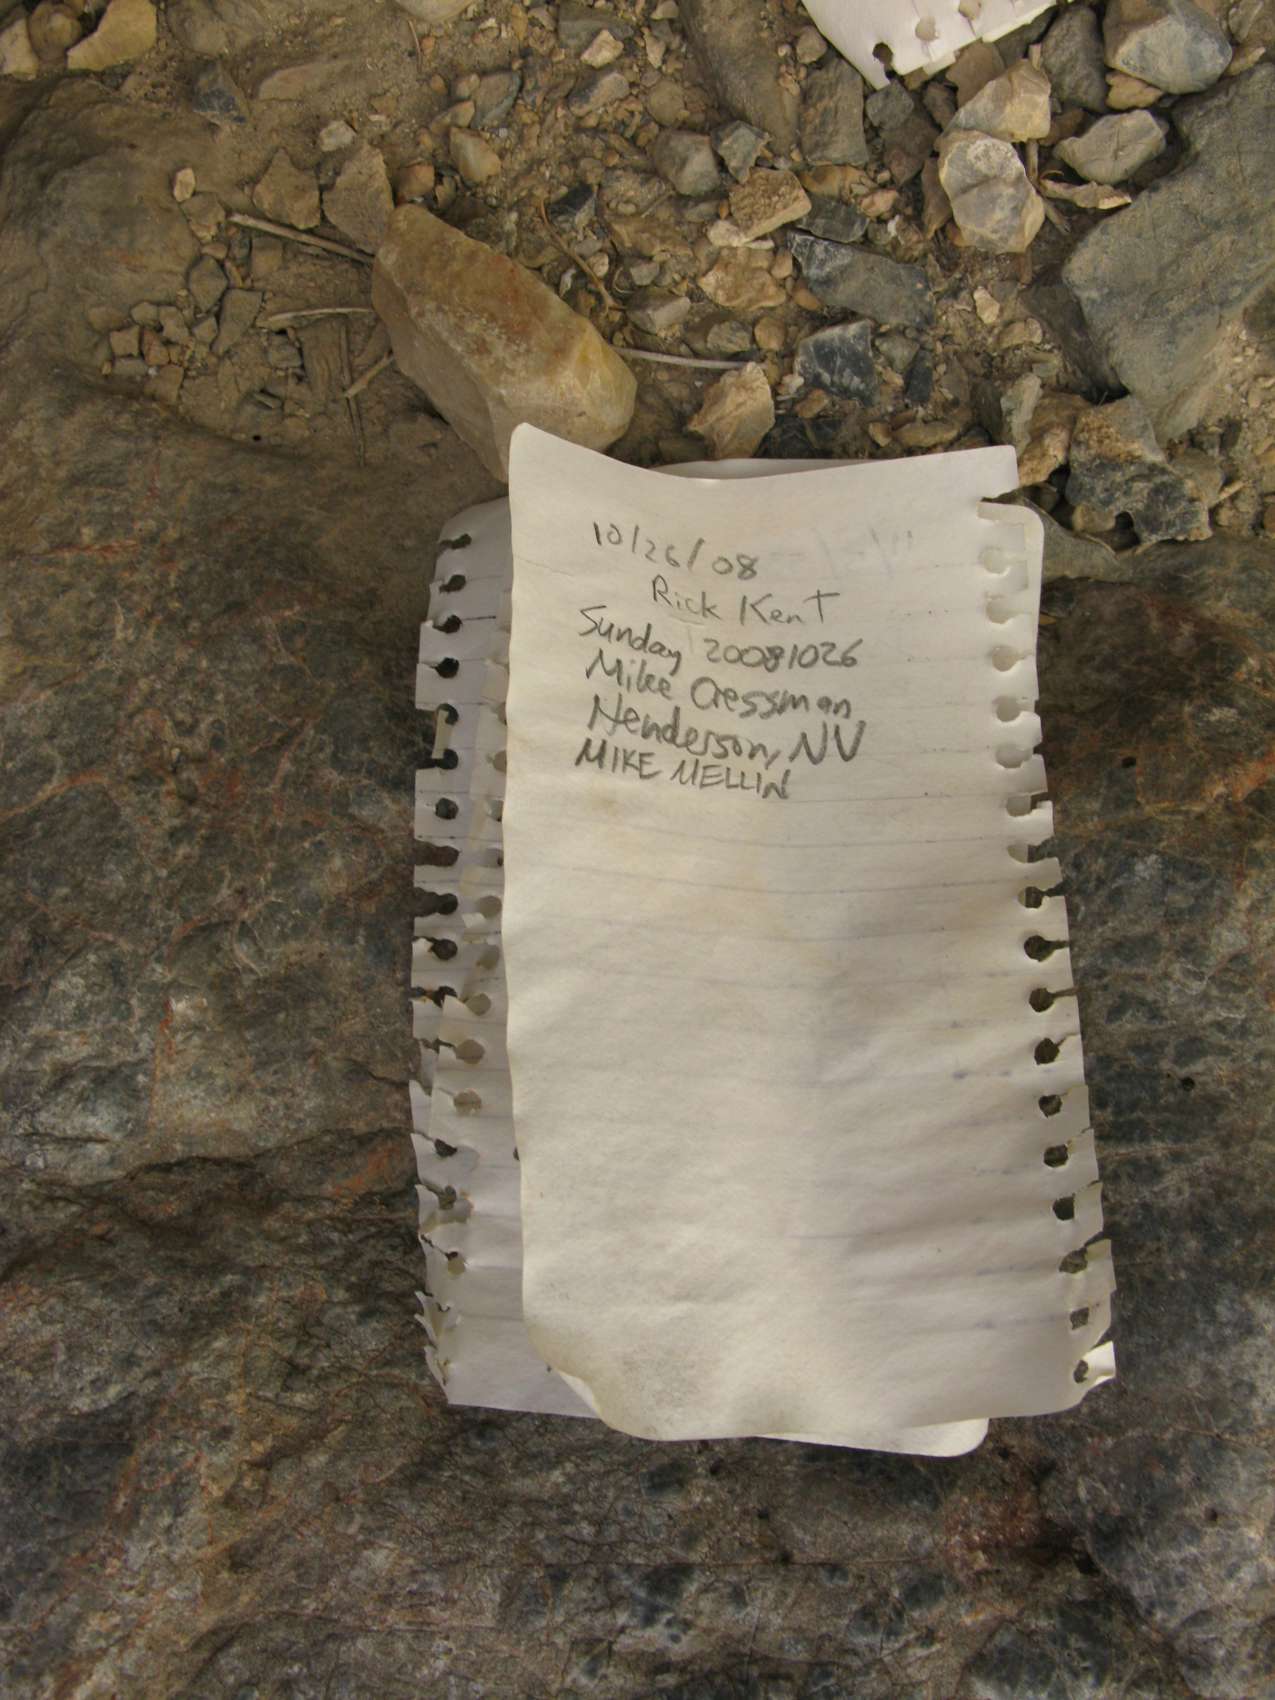 10/26/08
Rick Kent
Sunday 20081026
Mike Cressman
Henderson, NV
MIKE MELLIN